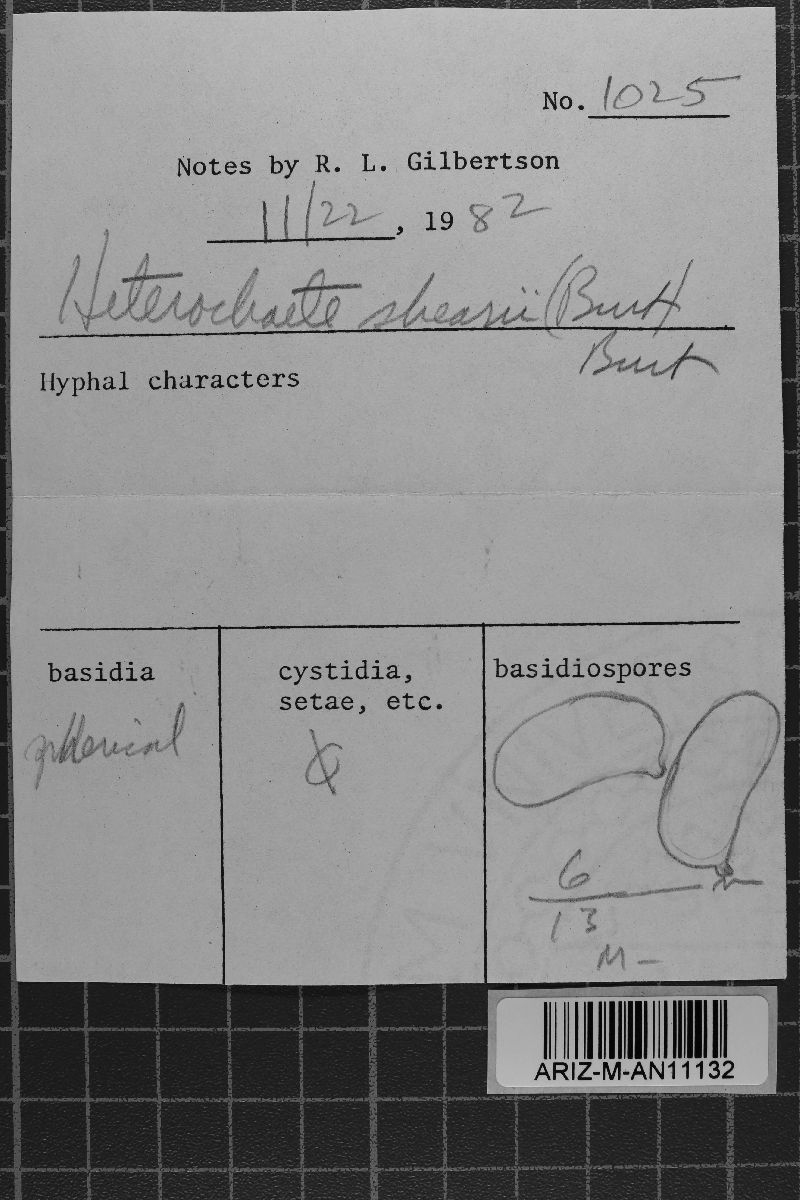 No. 1025
Notes by R. L. Gilbertson
11/22, 1982
Heterochaete shearii (Burt)
Burt
Hyphal characters
basidia
cystidia,
setae, etc.
basidiospores
spherical
6
13
M-
ARIZ-M-AN11132